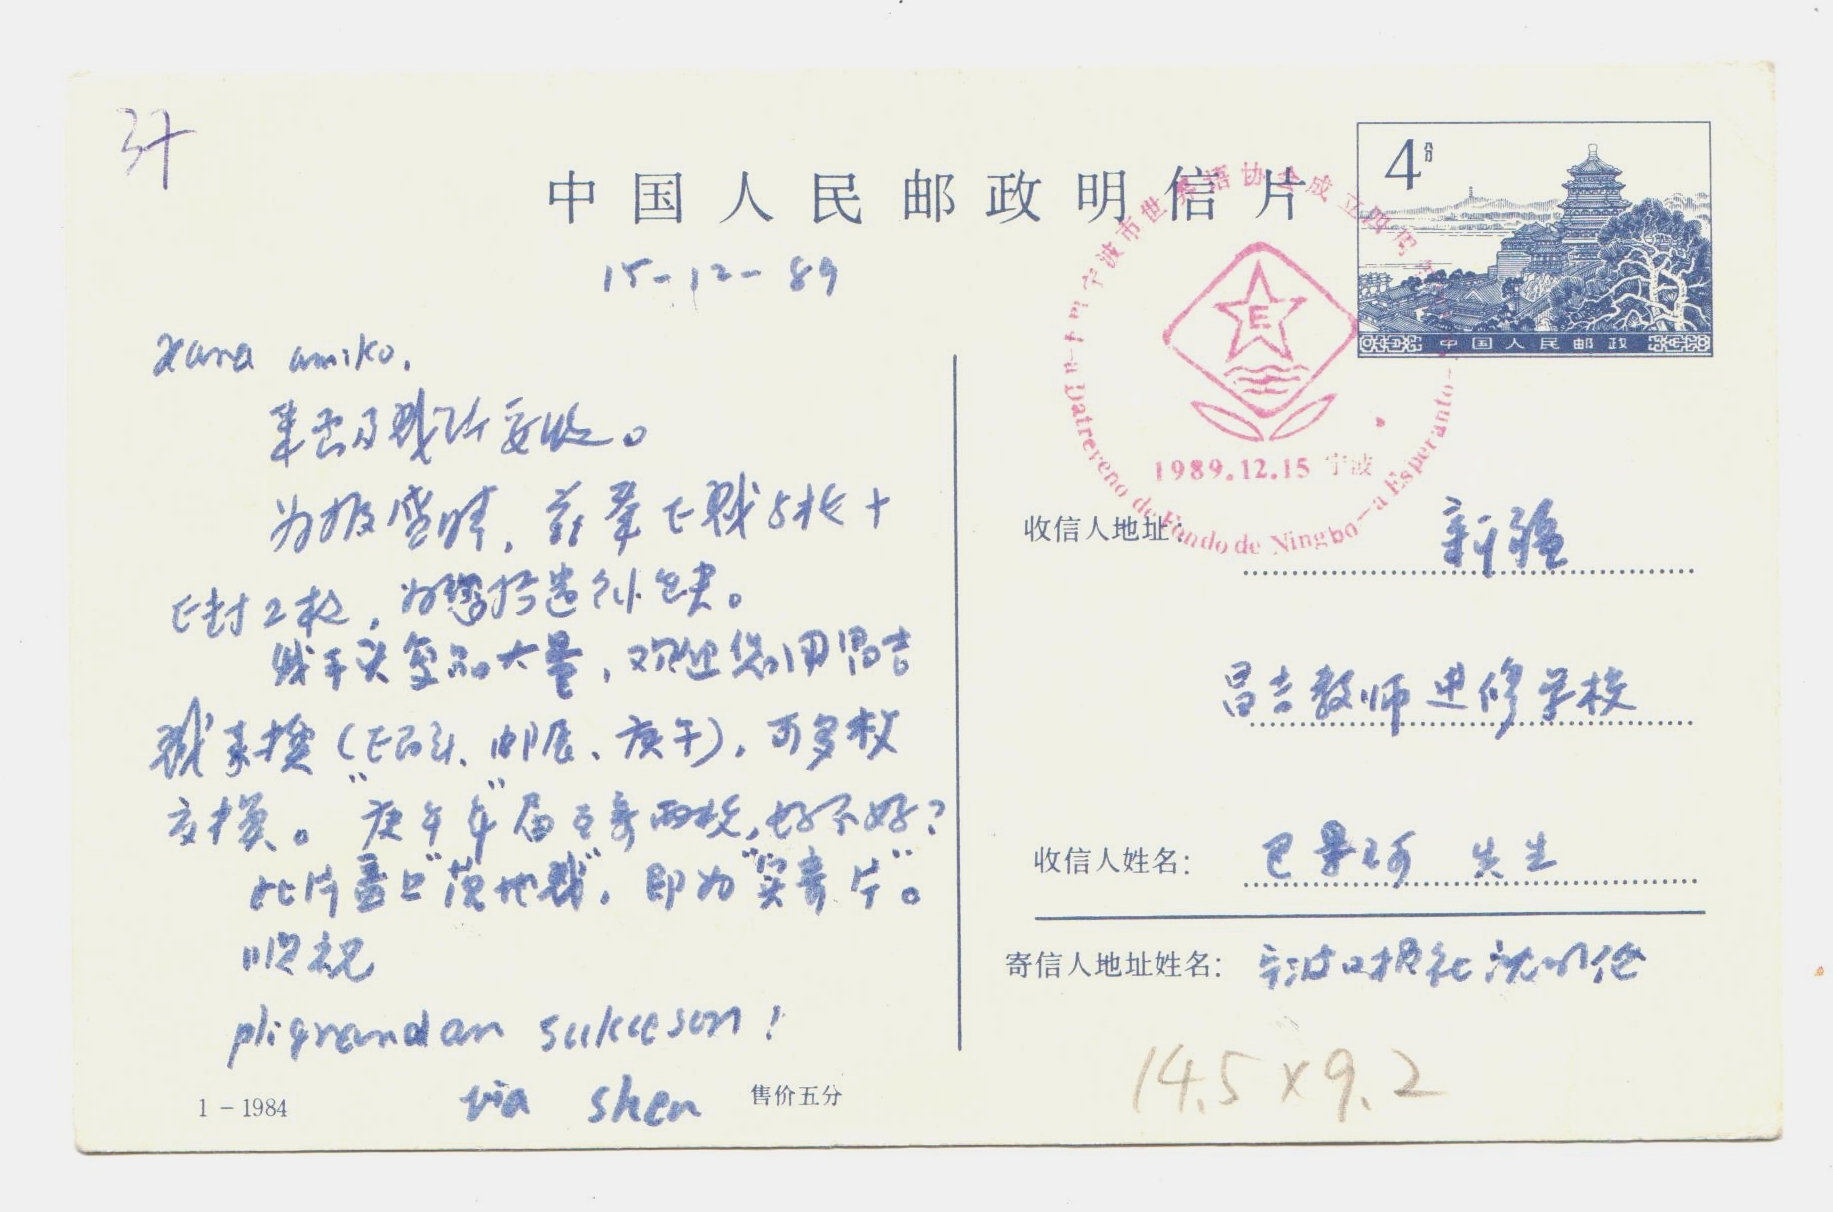 37
中国人民邮政明信片
4分
中国人民邮政
15-12-89
宁波市世界语协会成立四周年
Datreveno de Fondo de Ningbo-a Esperanto-
E
1989.12.15 宁波
Kara amiko.
来函及戳片妥收。
为报盛情,兹奉上戳5枚十
上封2枚,为您拾遗补缺。
戳不求量大,欢迎您用昌吉
戳来换(邮展、庚午),可多枚
交换。"庚午年"届互寄两枚,好不好?
此片盖上"落地戳",即为"实寄片"。
顺祝
pligrandan sukceson!
via shen
1-1984
售价五分
收信人地址:
新疆
昌吉教师进修学校
收信人姓名:
巴景河 先生
寄信人地址姓名:
宁波日报社沈
14.5×9.2